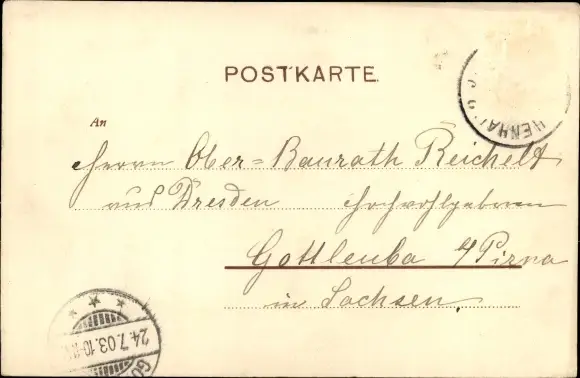 POSTKARTE.
HENHA
An
Herrn Ober-Baurath Reichelt
aus Dresden Hochwohlgeboren
Gottleuba a/Pirna
in Sachsen.
24.7.03.10-11
GO